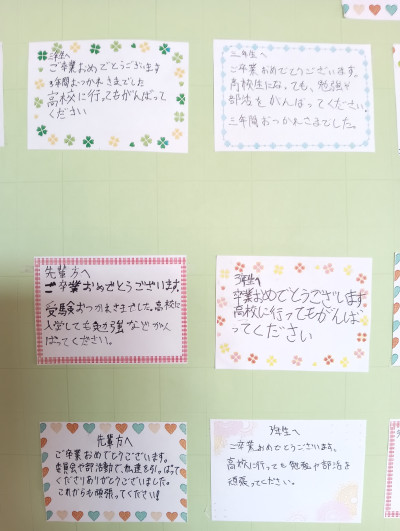 3年生へ
ご卒業おめでとうございます
3年間おつかれさまでした
高校に行ってもがんばって
ください
三年生へ
ご卒業おめでとうございます。
高校生になっても、勉強や
部活をがんばってください。
三年間おつかれさまでした。
先輩方へ
ご卒業おめでとうございます
受験おつかれさまでした。高校に
入学しても勉強などがん
ばってください。
3年生へ
卒業おめでとうございます
高校に行ってもがんば
ってください
先輩方へ
ご卒業おめでとうございます。
委員会や部活動で、私達を引っぱって
くださりありがとうございました。
これからも頑張ってください!
3年生へ
ご卒業おめでとうございます。
高校に行っても勉強や部活を
頑張ってください。